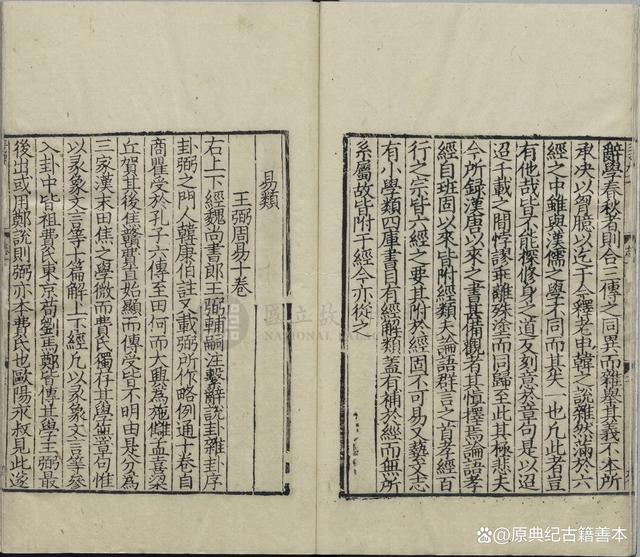 辭學春秋者則合三傳之同異而雜舉其義不本所
承決以胷臆以迄于今釋老申韓之說雜然滿於六
經之中雖與漢儒之學不同而其失一也凡此者豈
有他哉皆不能探修身之道友刻意於章句是以迢
迢千載之間悖謬乖離殊塗而同歸至此其極悲夫
今所錄漢唐以來之書甚備觀者其慎擇焉論語孝
經自班固以來皆附經類夫論語群言之首孝經百
行之宗皆六經之要其附於經固不可易又藝文志
有小學類四庫書目有經解類蓋有補於經而無所
系屬故皆附于經今亦從之
易類
王弼周易十卷
右上下經魏尚書郎王弼輔嗣注繫辭說卦雜卦序
卦弼之門人韓康伯註又載弼所作略例通十卷自
商瞿受於孔子六傳至田何而大興為施讎孟喜梁
丘賀其後焦贛費直始顯而傳受皆不明由是分為
三家漢末田焦之學微而費氏獨存其學無章句惟
以彖象文言等十篇解上下經凡以彖象文言等參
入卦中皆祖費氏東京荀劉馬鄭皆傳其學王弼最
後出或用鄭說則弼亦本費氏也歐陽永叔見此遂
國立故
NATIONAL
@原典纪古籍善本